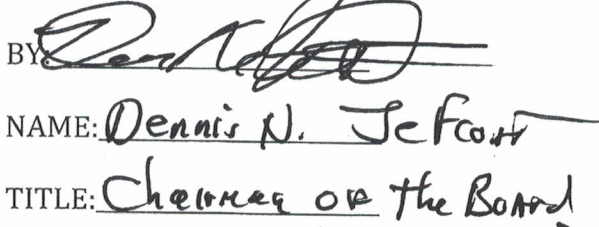 BY:
NAME: Dennis N. Jefcoat
TITLE: Chairman of the Board